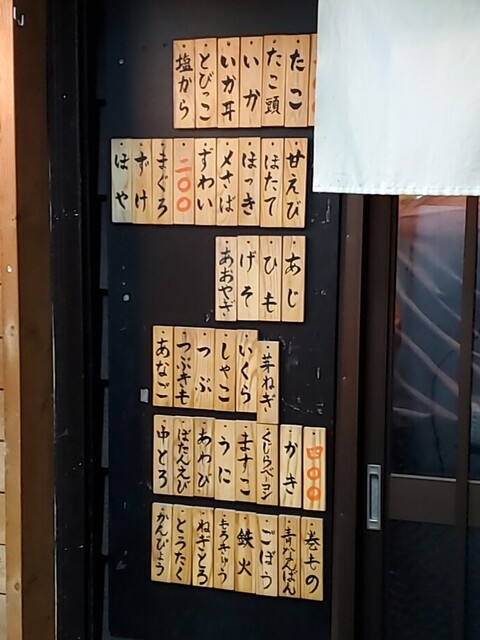 たこ
たこ頭
いか
いか耳
とびっこ
塩から
甘えび
ほたて
ほっき
〆さば
ずわい
二〇〇
まぐろ
ずけ
ほや
あじ
ひも
げそ
あおやぎ
芽ねぎ
いくら
しゃこ
つぶ
つぶきも
あなご
四〇〇
かき
くじらベーコン
ますこ
うに
あわび
ぼたんえび
中とろ
巻もの
青なんばん
ごぼう
鉄火
ねぎとろ
とろたく
かんぴょう